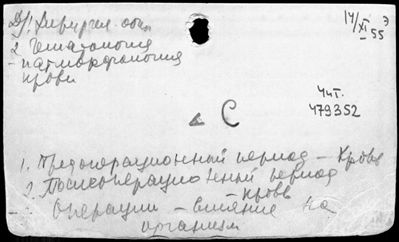 Д/. Хирургия общ.
2 Гематология
- патморфология
крови
14/XI 55 Э
С
Чит.
479352
1. Предоперационный период - Кровь
2. Послеоперационный период
- Кровь
Операции - влияние на
организм